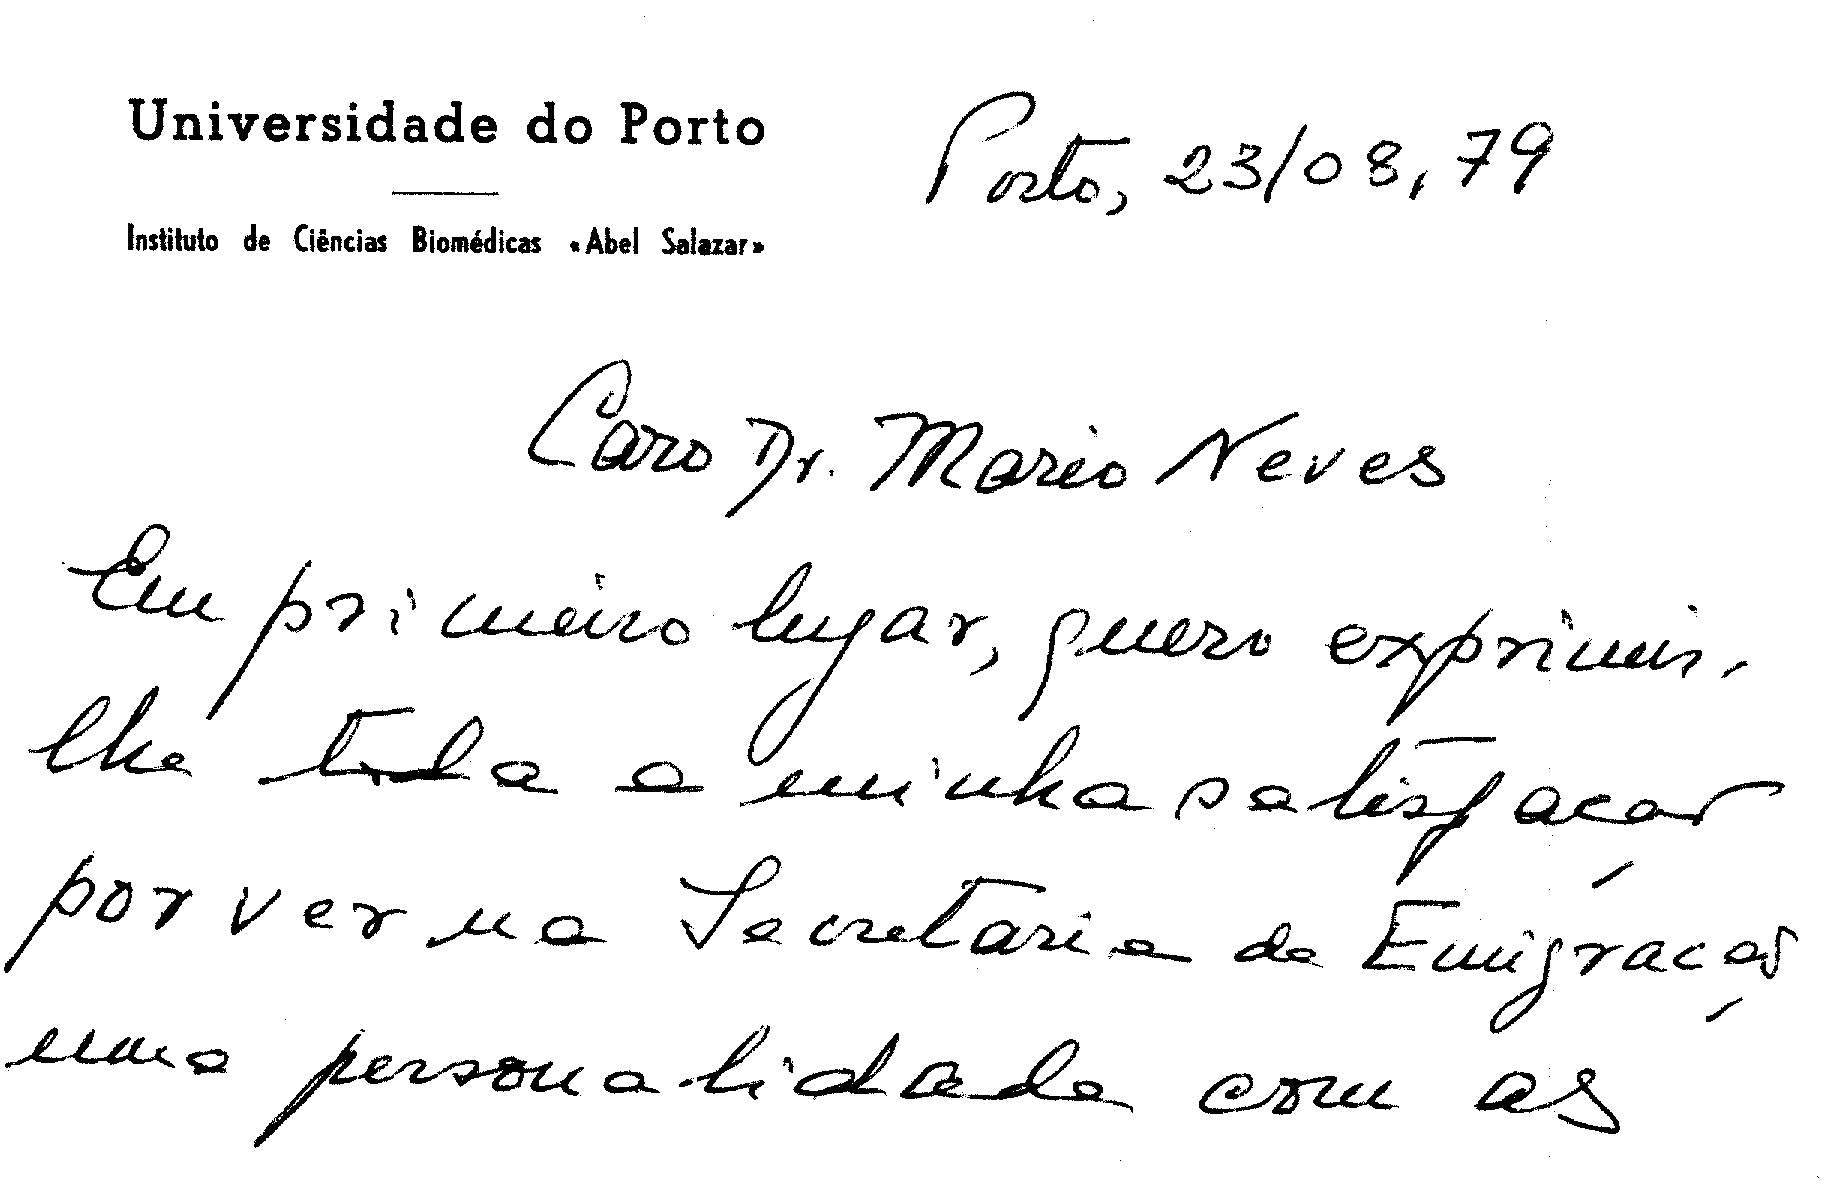 Universidade do Porto
Instituto de Ciências Biomédicas «Abel Salazar»
Porto, 23/08, 79
Caro Dr. Mario Neves
Em primeiro lugar, quero exprimir-
lhe toda a minha satisfação
por ver na Secretaria da Emigração
uma personalidade com as